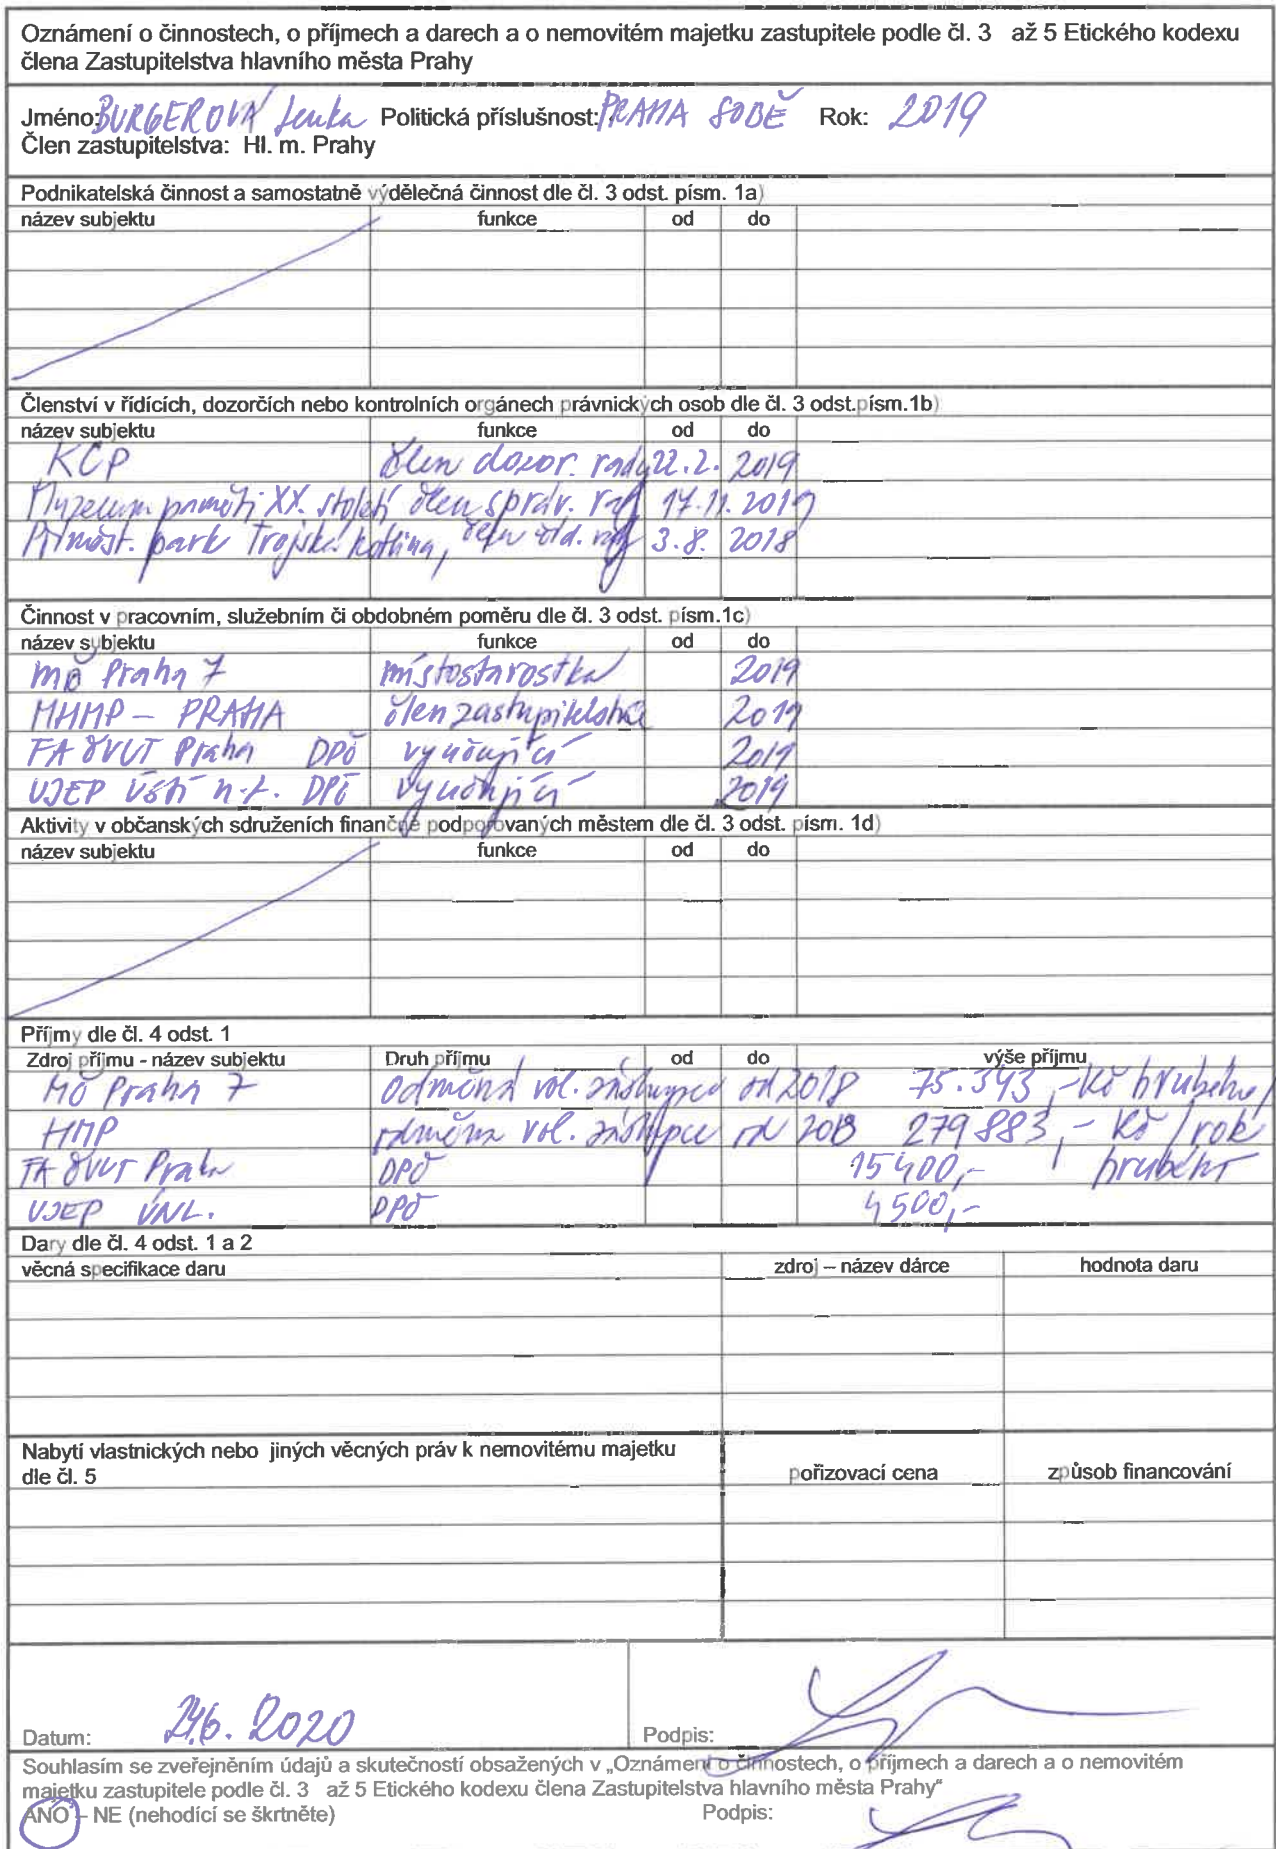 Oznámení o činnostech, o příjmech a darech a o nemovitém majetku zastupitele podle čl. 3 až 5 Etického kodexu
člena Zastupitelstva hlavního města Prahy
Jméno: BURGEROVÁ Lenka Politická příslušnost: PRAHA SOBĚ Rok: 2019
Člen zastupitelstva: Hl. m. Prahy
Podnikatelská činnost a samostatně výdělečná činnost dle čl. 3 odst. písm. 1a)
název subjektu funkce od do
Členství v řídících, dozorčích nebo kontrolních orgánech právnických osob dle čl. 3 odst.písm.1b)
název subjektu funkce od do
KCP člen dozor. rady 22.2. 2019
Muzeum paměti XX. století člen správ. rady 17.11. 2019
Příměst. park Trojská kotlina, člen říd. rady 3.8. 2018
Činnost v pracovním, služebním či obdobném poměru dle čl. 3 odst. písm.1c)
název subjektu funkce od do
MČ Praha 7 místostarostka 2019
MHMP - PRAHA člen zastupitelstva 2019
FA ČVUT Praha DPČ vyučující 2019
UJEP Ústí n.L. DPČ vyučující 2019
Aktivity v občanských sdruženích finančně podporovaných městem dle čl. 3 odst. písm. 1d)
název subjektu funkce od do
Příjmy dle čl. 4 odst. 1
Zdroj příjmu - název subjektu Druh příjmu od do výše příjmu
MČ Praha 7 Odměna vol. zástupce od 2018 75.343,- Kč hrubého/
HMP odměna vol. zástupce od 2018 279 883,- Kč / rok
FA ČVUT Praha DPČ 15 400,- hrubého
UJEP ÚNL. DPČ 4 500,-
Dary dle čl. 4 odst. 1 a 2
věcná specifikace daru zdroj – název dárce hodnota daru
Nabytí vlastnických nebo jiných věcných práv k nemovitému majetku
dle čl. 5 pořizovací cena způsob financování
Datum: 24.6. 2020 Podpis:
Souhlasím se zveřejněním údajů a skutečností obsažených v „Oznámení o činnostech, o příjmech a darech a o nemovitém
majetku zastupitele podle čl. 3 až 5 Etického kodexu člena Zastupitelstva hlavního města Prahy"
ANO - NE (nehodící se škrtněte) Podpis: